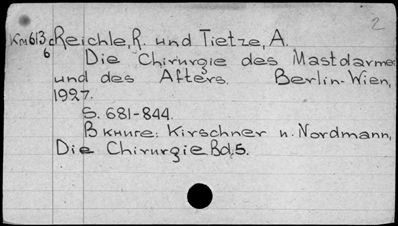 2
Км613с Reichle, R. und Tietze, A.
6 Die Chirurgie des Mastdarmes
und des Afters. Berlin-Wien,
1927.
S. 681-844.
В книге: Kirschner u. Nordmann,
Die Chirurgie Bd. 5.